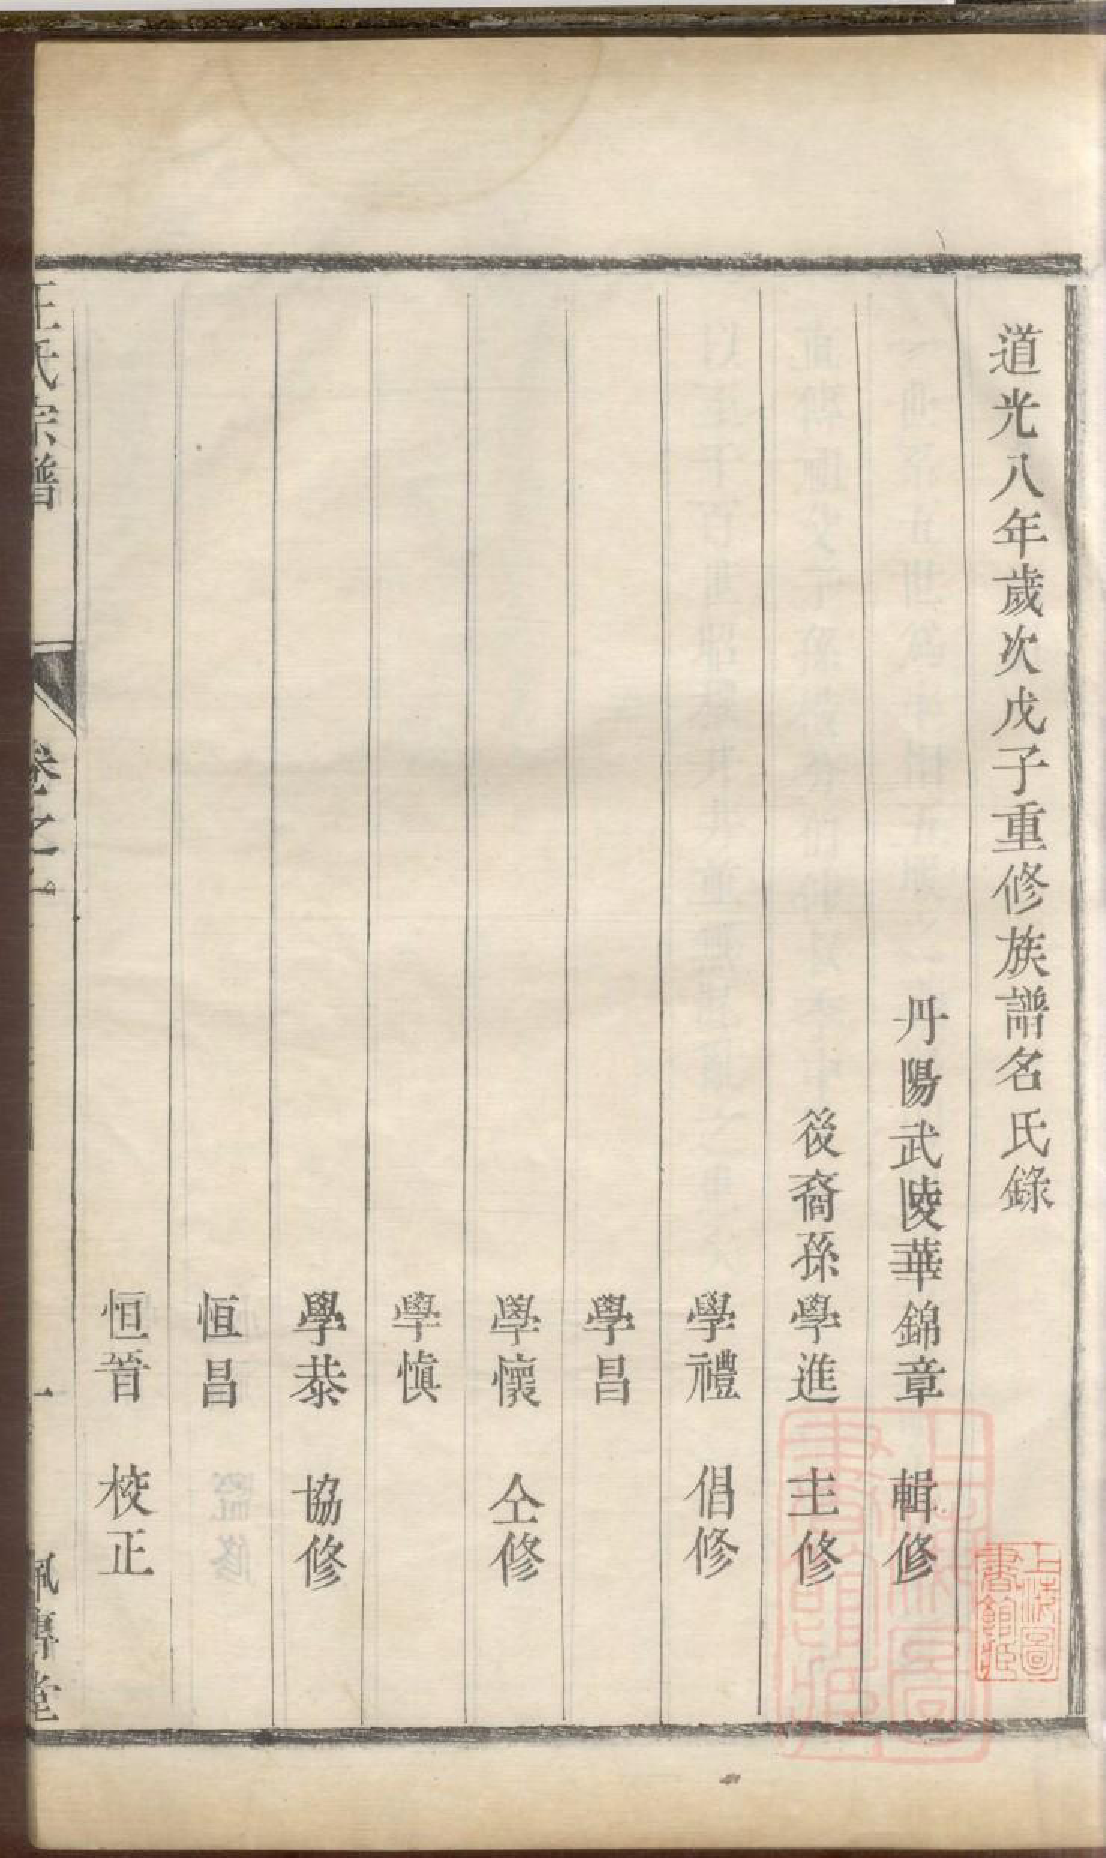 道光八年歲次戊子重修族譜名氏錄
丹陽武陵華錦章 輯修
後裔孫學進 主修
學禮 倡修
學昌
學懷 仝修
學慎
學恭 協修
恒昌
恒首 校正
王氏宗譜 卷之 一 傳堂
上海圖書館藏